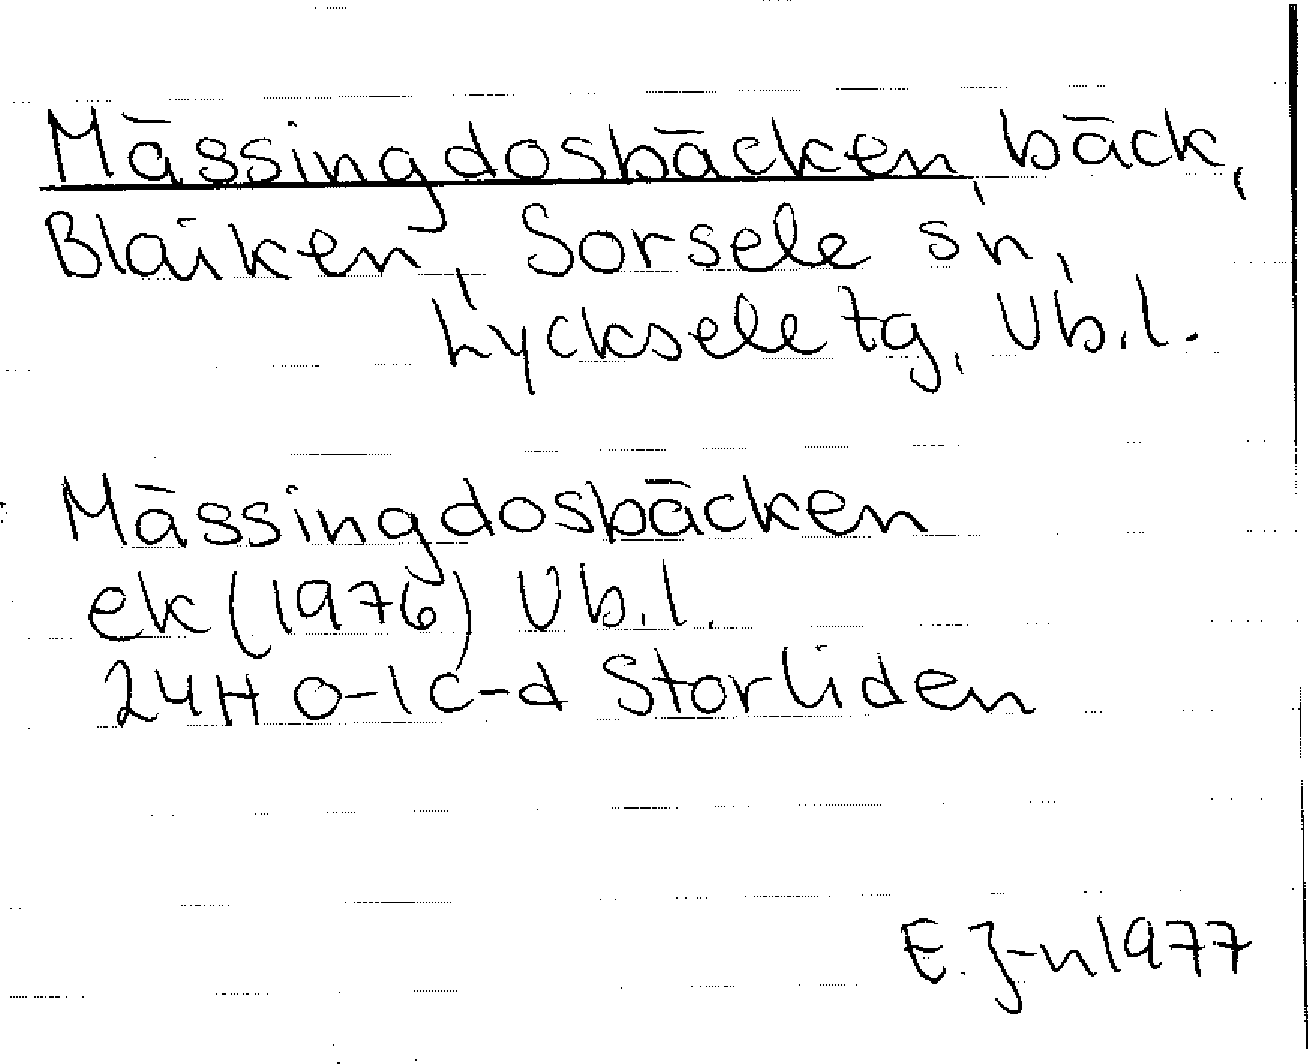 Mässingdosbäcken, bäck,
Blaiken, Sorsele sn,
Lycksele tg, Vb.l.
Mässingdosbäcken
ek (1976) Vb.l.
24H 0-1 c-d Storliden
E. J-n 1977